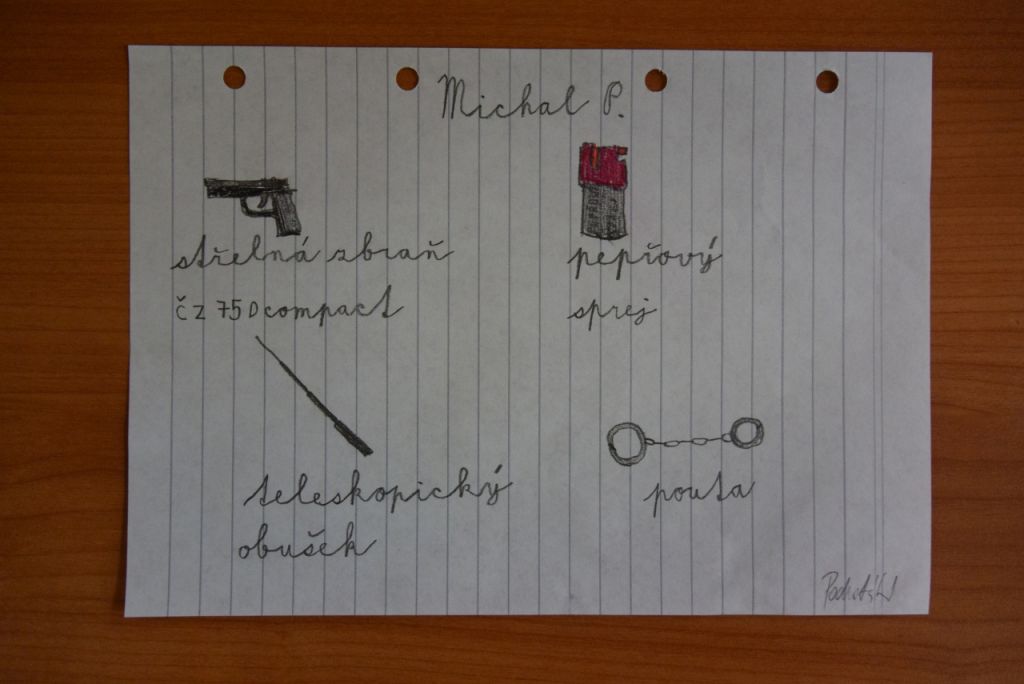 Michal P.
střelná zbraň
čz 75 D compact
pepřový
sprej
teleskopický
obušek
pouta